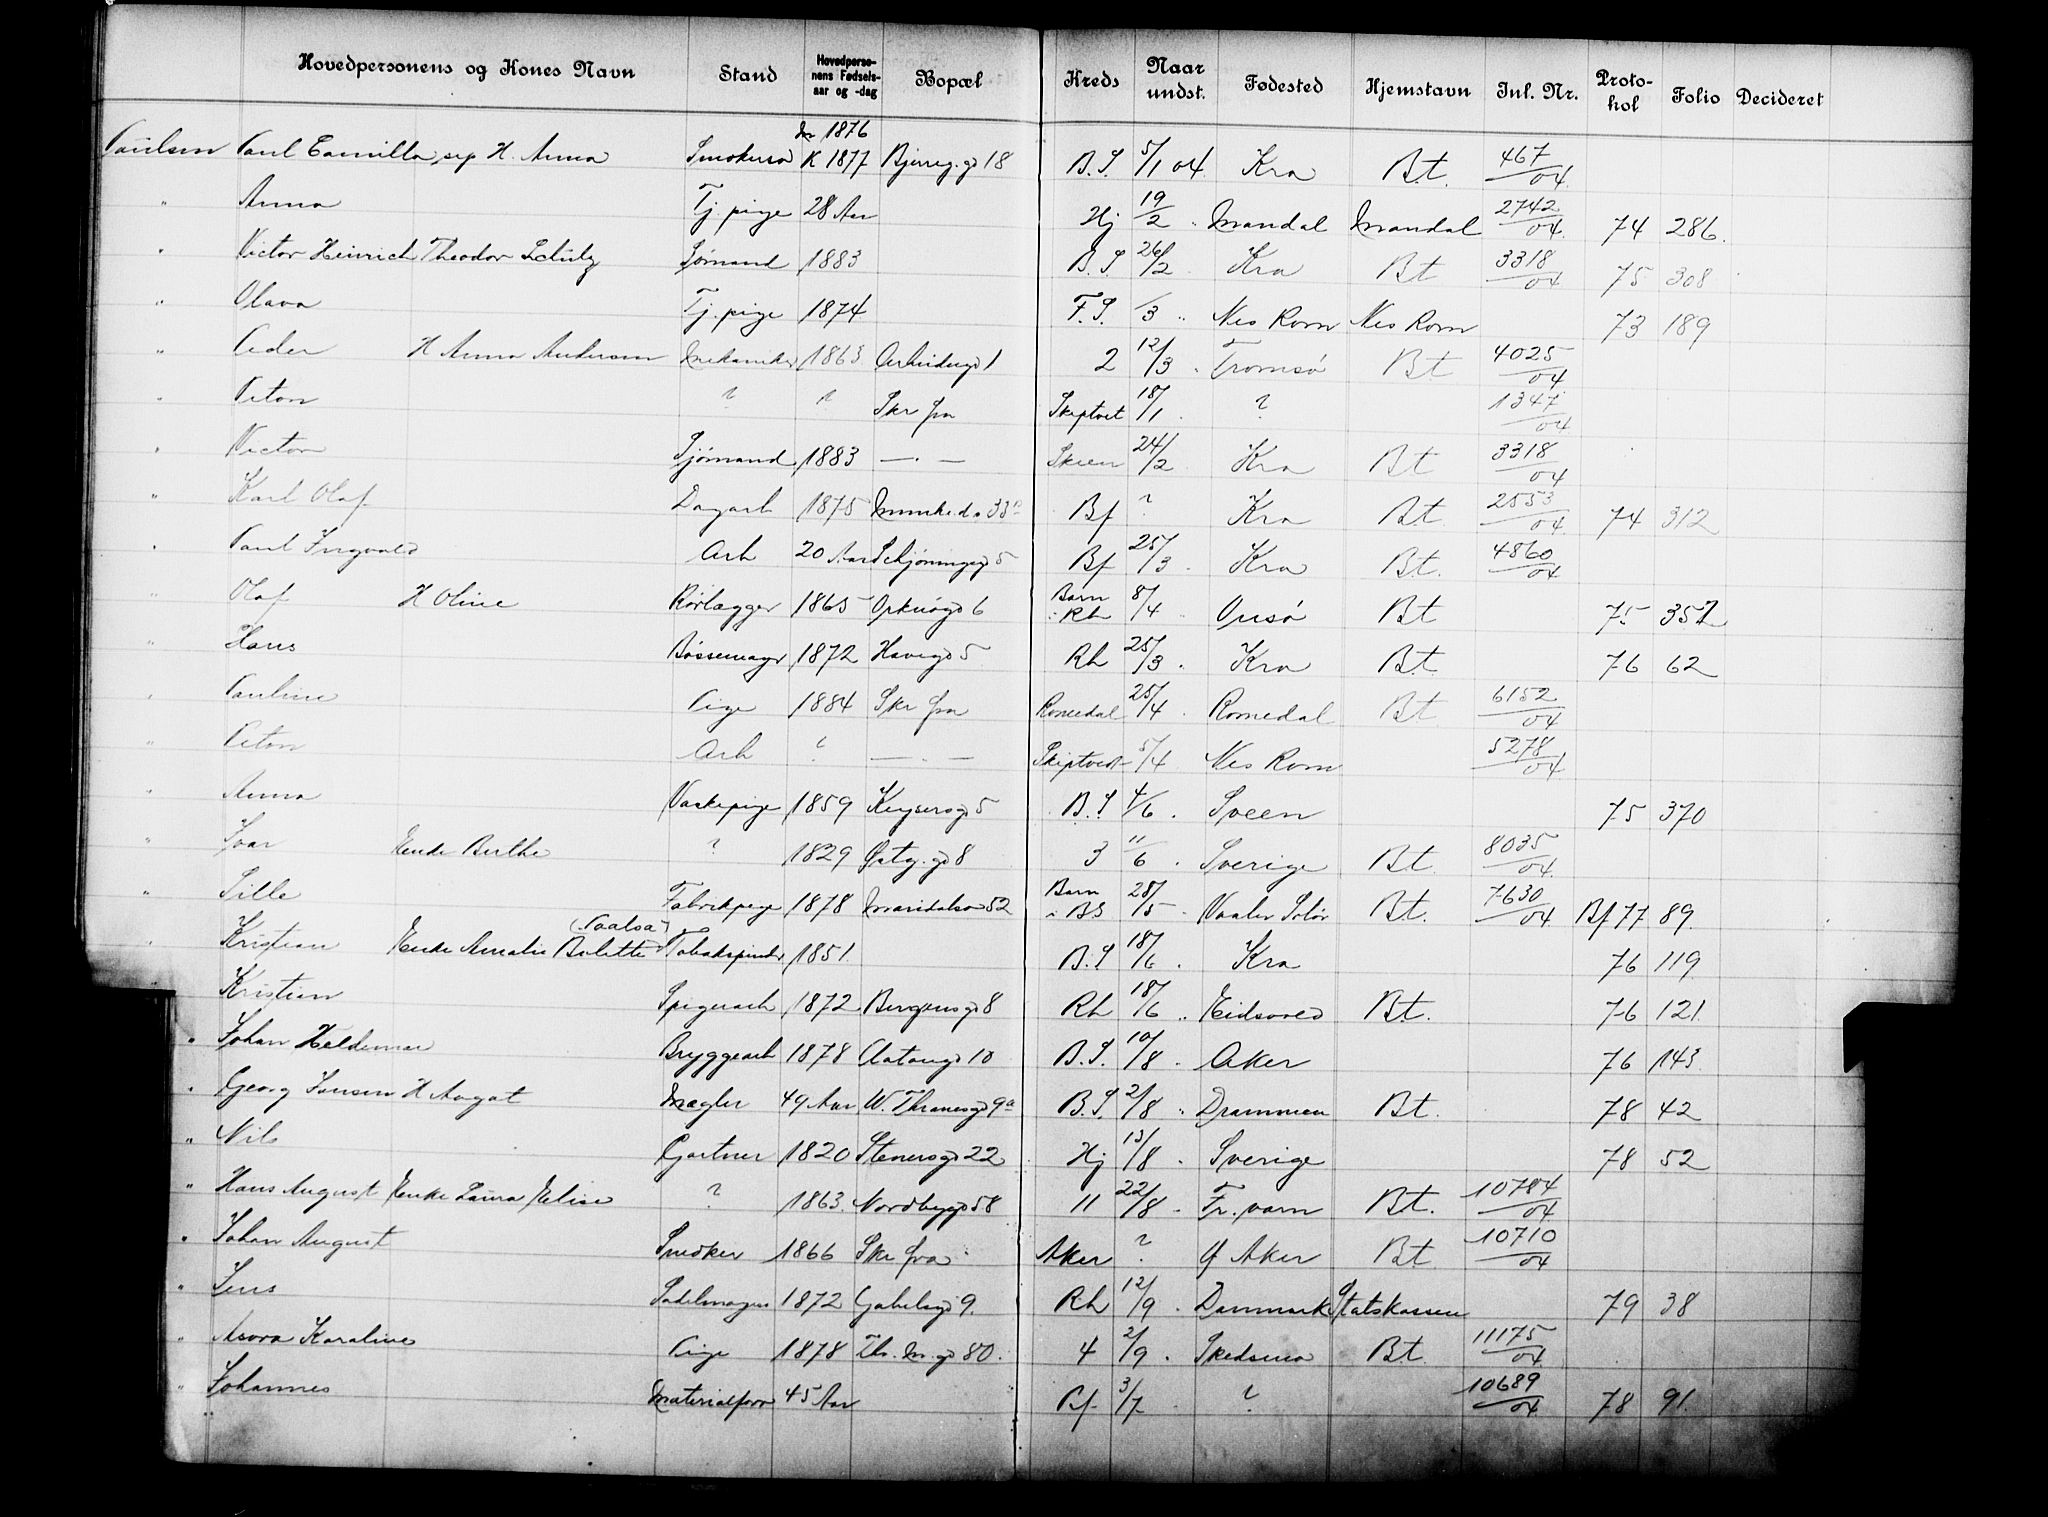 Hovedpersonens og Kones Navn Stand Hovedpersonens Fødselsaar og -dag Bopæl Kreds Naar undst. Fødested Hjemstavn Inl. Nr. Protokol Folio Decideret
M 1876
Paulsen Paul Camilla, sep H. Anna K 1877 18 B.S. 5/1 04 Kra Bt. 467/04
" Anna Tj. pige 28 Aar Hj 19/2 " Mandal Mandal 2742/04 74 286
" Victor Heinrich Theodor Schulz Sjømand 1883 B.S. 26/2 Kra Bt 3318/04 75 308
" Olava Tj. pige 1874 F.S. /3 " Nes Rom Nes Rom 73 189
" Peder H Anna Andersen Mekaniker 1863 1 2 12/3 " Tromsø Bt 4025/04
" Peton ? " Skr fra Skiptvet 18/1 ? 1347/04
" Victor Sjømand 1883 — . — Skien 24/2 Kra Bt 3318/04
" Karl Olaf Dagarb 1875 Bf ? Kra Bt. 2553/04 74 312
" Paul Ingvald Arb 20 Aar Schjøningsgd 5 Bf 25/3 . Kra Bt. 4860/04
" Olaf H Oline Rørlægger 1865 6 Barn i Rh 8/4 Onsø Bt 75 357
" Hans Bøssemagr 1872 Havegd 5 Rh 25/3 . Kra Bt. 76 62
" Pauline Pige 1884 Skr fra Romedal 25/4 . Romedal Bt 6152/04
" Peton Arb ? — . — Skiptvedt 5/4 Nes Rom 5278/04
" Anna Vaskepige 1859 Keysersgd 5 B.S 4/6 . Sveen 75 370
" Ivar Enke Berthe ? 1829 8 3 11/6 . Sverige Bt 8035/04
" Sille Fabrikpige 1878 Maridalsv 52 Barn i BS 28/5 . Vaaler Solør Bt. 7630/04 Bf 77 89.
" Kristian Enke Amalie Bolette Tobakspinder 1851 B.S 18/6 . Kra 76 119
" Kristian Spigerarb 1872 Bergensgd 8 Rh 18/6 " Eidsvold Bt. 76 121
" Johan Heldemar Bryggearb 1878 10 B.S. 10/8 . Aker 76 143
" Georg Jensen H Aagot Mægler 49 Aar W. Thranesgd 9a B.S. 2/8 " Drammen Bt. 78 42
" Nils Gartner 1820 Stenersgd 22 Hj 13/8 . Sverige 78 52
" Hans August Enke Laura Elise ? 1863 Nordbygd 58 11 22/8 . Fr. værn Bt. 10784/04
" Johan August Snedker 1866 Skr fra Aker ? Ø Aker Bt 10710/04
" Jens Sadelmager 1872 Gabelsgd 9. Rh 12/9 . Danmark Statskassen 79 38
" Karoline Pige 1878 Th. M. gd 80. 4 2/9 . Skedsmo Bt. 11175/04
" Johannes Materialforv 45 Aar Bf 3/7 ? 10689/04 78 91.